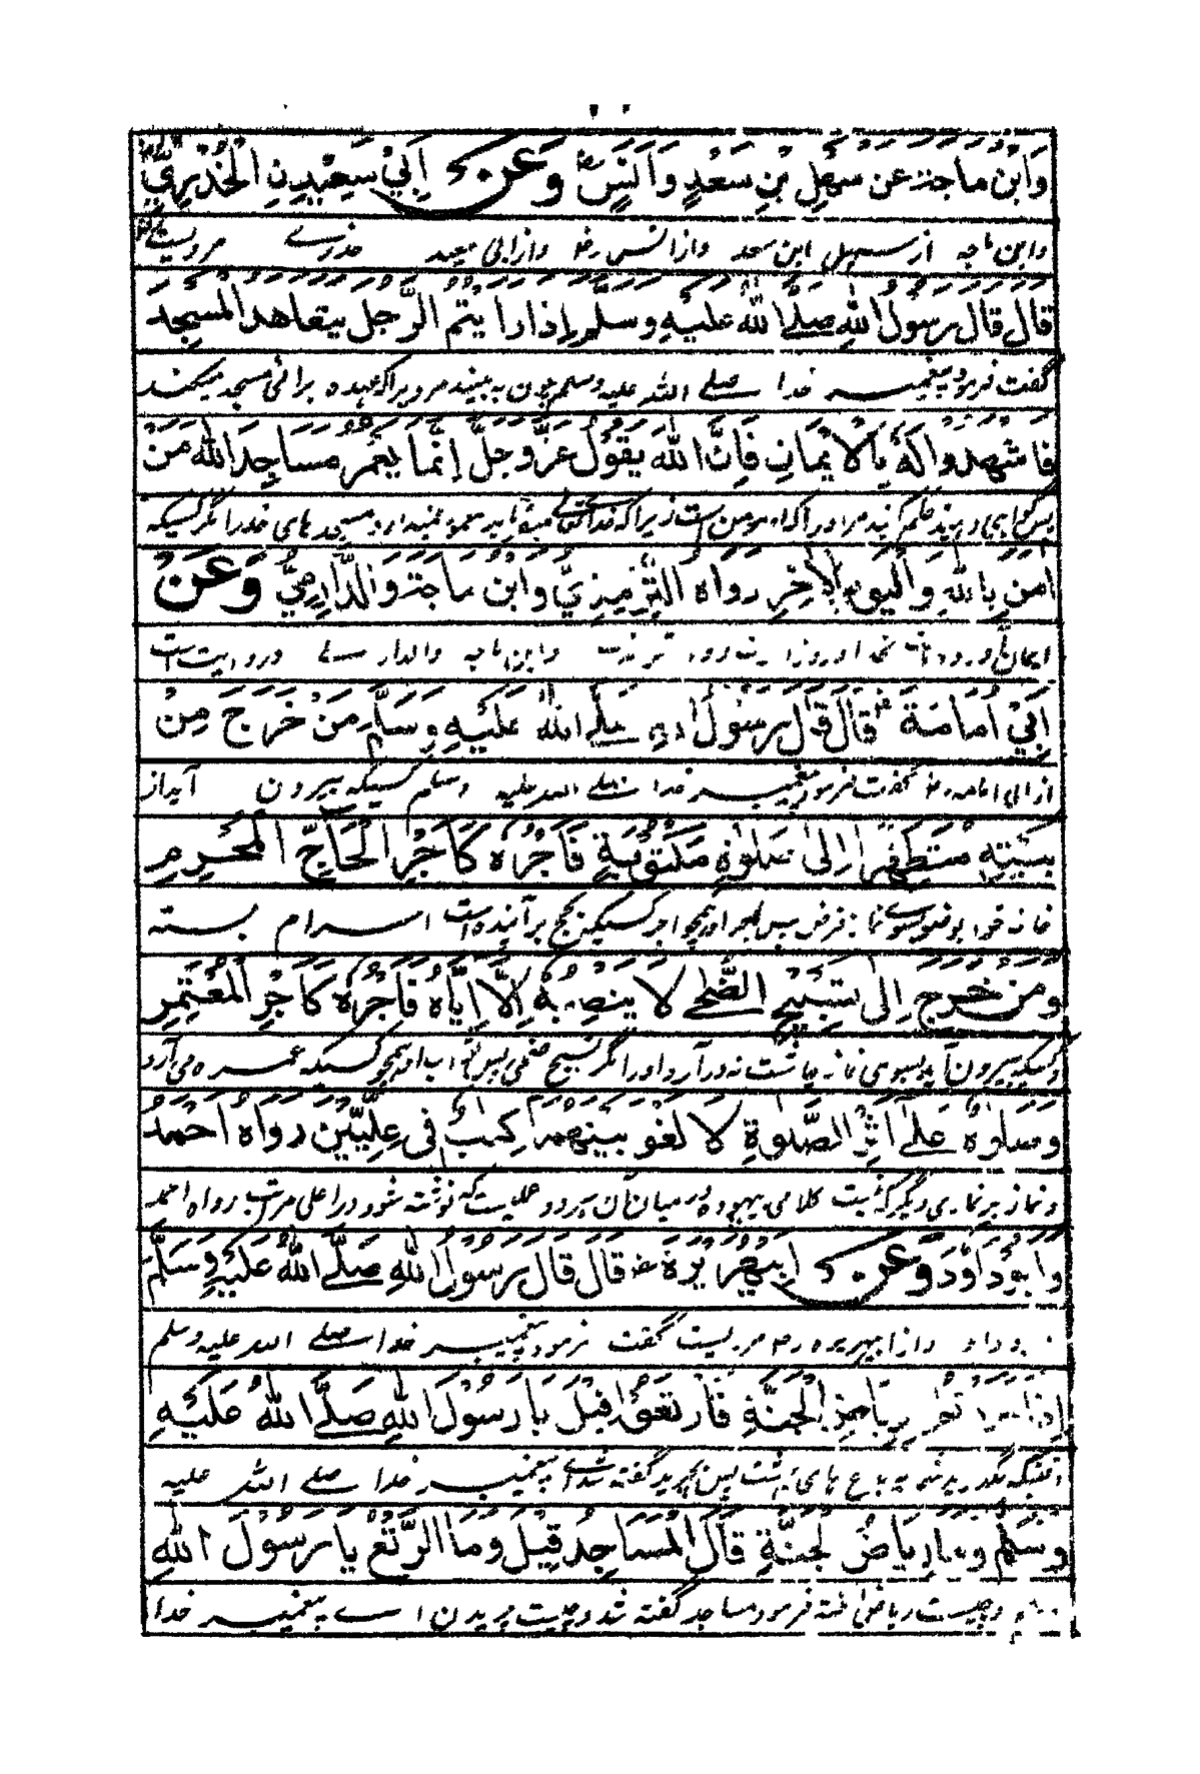 وَابْنُ مَاجَة عَن سَهْلِ بْنِ سَعْدٍ وَاَنَسٍ رض وَعَنْ اَبِيْ سَعِيْدِنِ الْخُدْرِيِّ
وابن ماجه از سهیل ابن سعد واز انس رض واز ابی سعید خدری مرویست
قَالَ قَالَ رَسُوْلُ اللهِ صَلَّے اللهُ عَلَيْهِ وَسَلَّمَ اِذَا رَاَيْتُمُ الرَّجُلَ يَتَعَاهَدُ الْمَسْجِدَ
گفت فرمود پیغمبر خدا صلے الله علیه وسلم چون به بینید مرد یرا که عهده برائی مسجد میکند
فَاشْهَدُوْا لَهٗ بِالْاِيْمَانِ فَاِنَّ اللهَ يَقُوْلُ عَزَّ وَجَلَّ اِنَّمَا يَعْمُرُ مَسَاجِدَ اللهِ مَنْ
پس گواهی دهید مر او را که او مومن است زیرا که خدا تعالے میفرماید مسجد های خدا را مگر کسیکه
اٰمَنَ بِاللهِ وَالْيَوْمِ الْاٰخِرِ رَوَاهُ التِّرْمِذِيُّ وَابْنُ مَاجَة وَالدَّارِمِيُّ وَعَنْ
ایمان روز ترمذے وابن ماجه والدارمے وروایت است
اَبِيْ اُمَامَةَ رض قَالَ قَالَ رَسُوْلُ اللهِ صَلَّے اللهُ عَلَيْهِ وَسَلَّمَ مَنْ خَرَجَ مِنْ
از ابی امامه رض گفت فرمود پیغمبر خدا صلے الله علیه وسلم کسیکه بیرون آید از
بَيْتِهٖ مُتَطَهِّرًا اِلٰى صَلٰوةٍ مَكْتُوْبَةٍ فَاَجْرُهٗ كَاَجْرِ الْحَاجِّ الْمُحْرِمِ
خانه خود بوضو بسوے نماز فرض پس اجر او همچو اجر کسیکه بحج برآینده است احرام بسته
وَمَنْ خَرَجَ اِلٰى تَسْبِيْحِ الضُّحٰے لَا يُنْصِبُهٗ اِلَّا اِيَّاهُ فَاَجْرُهٗ كَاَجْرِ الْمُعْتَمِرِ
وکسیکه بیرون آید بسوی نماز چاشت نه در آرد او را مگر تسبیح ضحی پس ثواب او همچو کسیکه عمره می آرد
وَصَلٰوةٌ عَلٰے اَثَرِ الصَّلٰوةِ لَا لَغْوَ بَيْنَهُمَا كِتٰبٌ فِي عِلِّيِّيْنَ رَوَاهُ اَحْمَدُ
ونماز بر نمازی دیگر که نیست کلامی بیهوده در میان آن هر دو عملیست که نوشته شود در اعلی مرتب رواه احمد
وَاَبُوْ دَاوٗدَ وَعَنْ اَبِيْهُرَيْرَةَ رض قَالَ قَالَ رَسُوْلُ اللهِ صَلَّے اللهُ عَلَيْهِ وَسَلَّمَ
داود واز ابیهریره رض مرویست گفت فرمود پیغمبر خدا صلے الله علیه وسلم
اِذَا مَرَرْتُمْ بِرِيَاضِ الْجَنَّةِ فَارْتَعُوْا قِيْلَ يَا رَسُوْلَ اللهِ صَلَّے اللهُ عَلَيْهِ
به باغ های بهشت پس بچرید گفته شد اے پیغمبر خدا صلے الله علیه
وَسَلَّمَ وَمَا رِيَاضُ الْجَنَّةِ قَالَ الْمَسَاجِدُ قِيْلَ وَمَا الرَّتْعُ يَا رَسُوْلَ اللهِ
وچیست ریاض فرمود مساجد گفته شد وچیست چریدن اے پیغمبر خدا